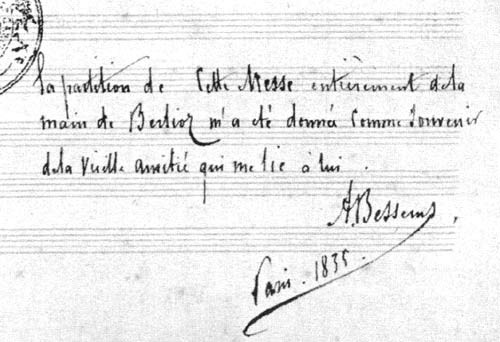 La partition de Cette Messe entièrement de la
main de Berlioz m'a été donnée Comme Souvenir
de la Vieille amitié qui me lie à lui.
A. Bessems,
Paris. 1835.